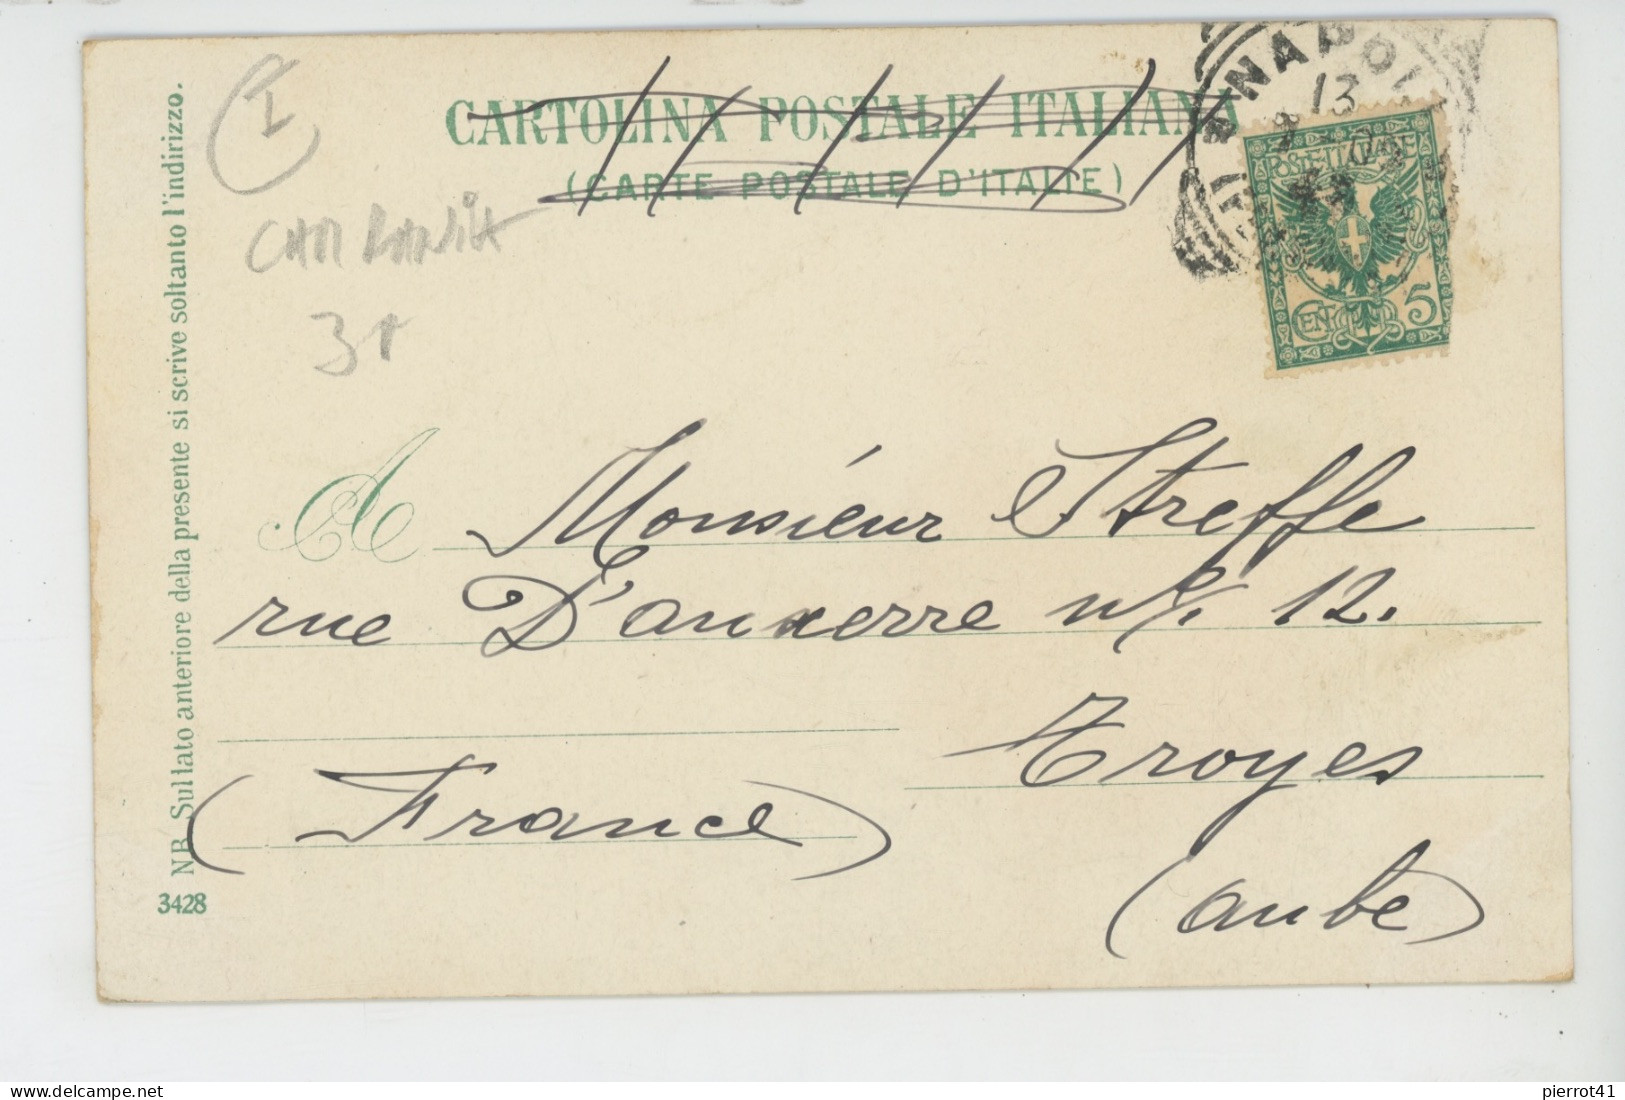 CARTOLINA POSTALE ITALIANA
(CARTE POSTALE D'ITALIE)
NAPOLI
13
POSTE ITALIANE
CEN 5
I
CAMPANIA
3
A Monsieur Streffe
rue D'auxerre nº 12.
Troyes
(France)
(aube)
N.B. Sul lato anteriore della presente si scrive soltanto l'indirizzo.
3428
delcampe.net
pierrot41